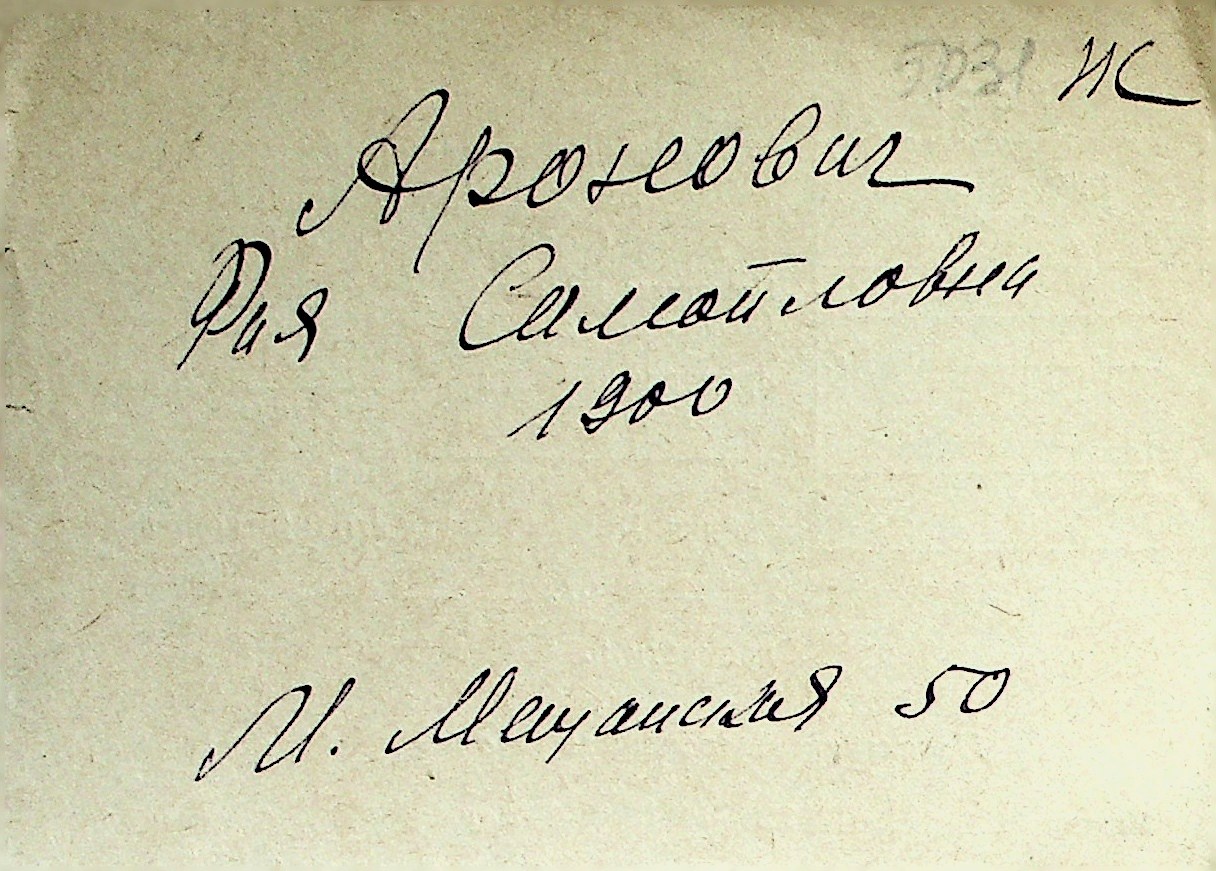 Ж
Аронович
Фая Самойловна
1900
М. Мещанская 50